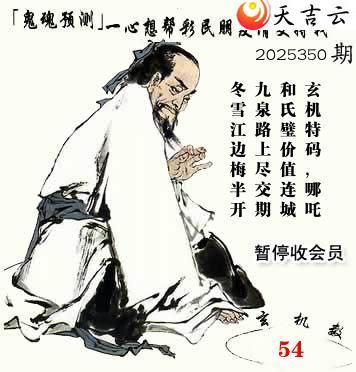 「鬼魂预测」一心想帮彩民朋友
天吉云
2025350 期
玄机特码，哪吒
和氏璧价值连城
九泉路上尽交期
冬雪江边梅半开
暂停收会员
玄机
54